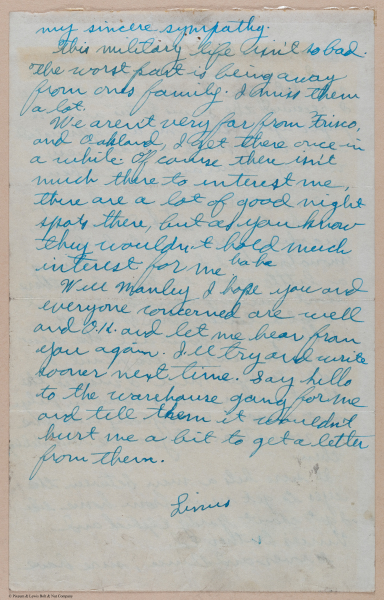 my sincere sympathy.
This military life isn't so bad.
The worst part is being away
from ones family. I miss them
a lot.
We aren't very far from Frisco,
and Oakland, I get there once in
a while. Of course there isn't
much there to interest me,
there are a lot of good night
spots there, but as you know
they wouldn't hold much
interest for me ha ha
Well Manley I hope you and
everyone concerned are well
and O.K. and let me hear from
you again. I'll try and write
sooner next time. Say hello
to the warehouse gang for me
and tell them it wouldn't
hurt me a bit to get a letter
from them.
Linus
© Parsons & Lawns Bolt & Nut Company